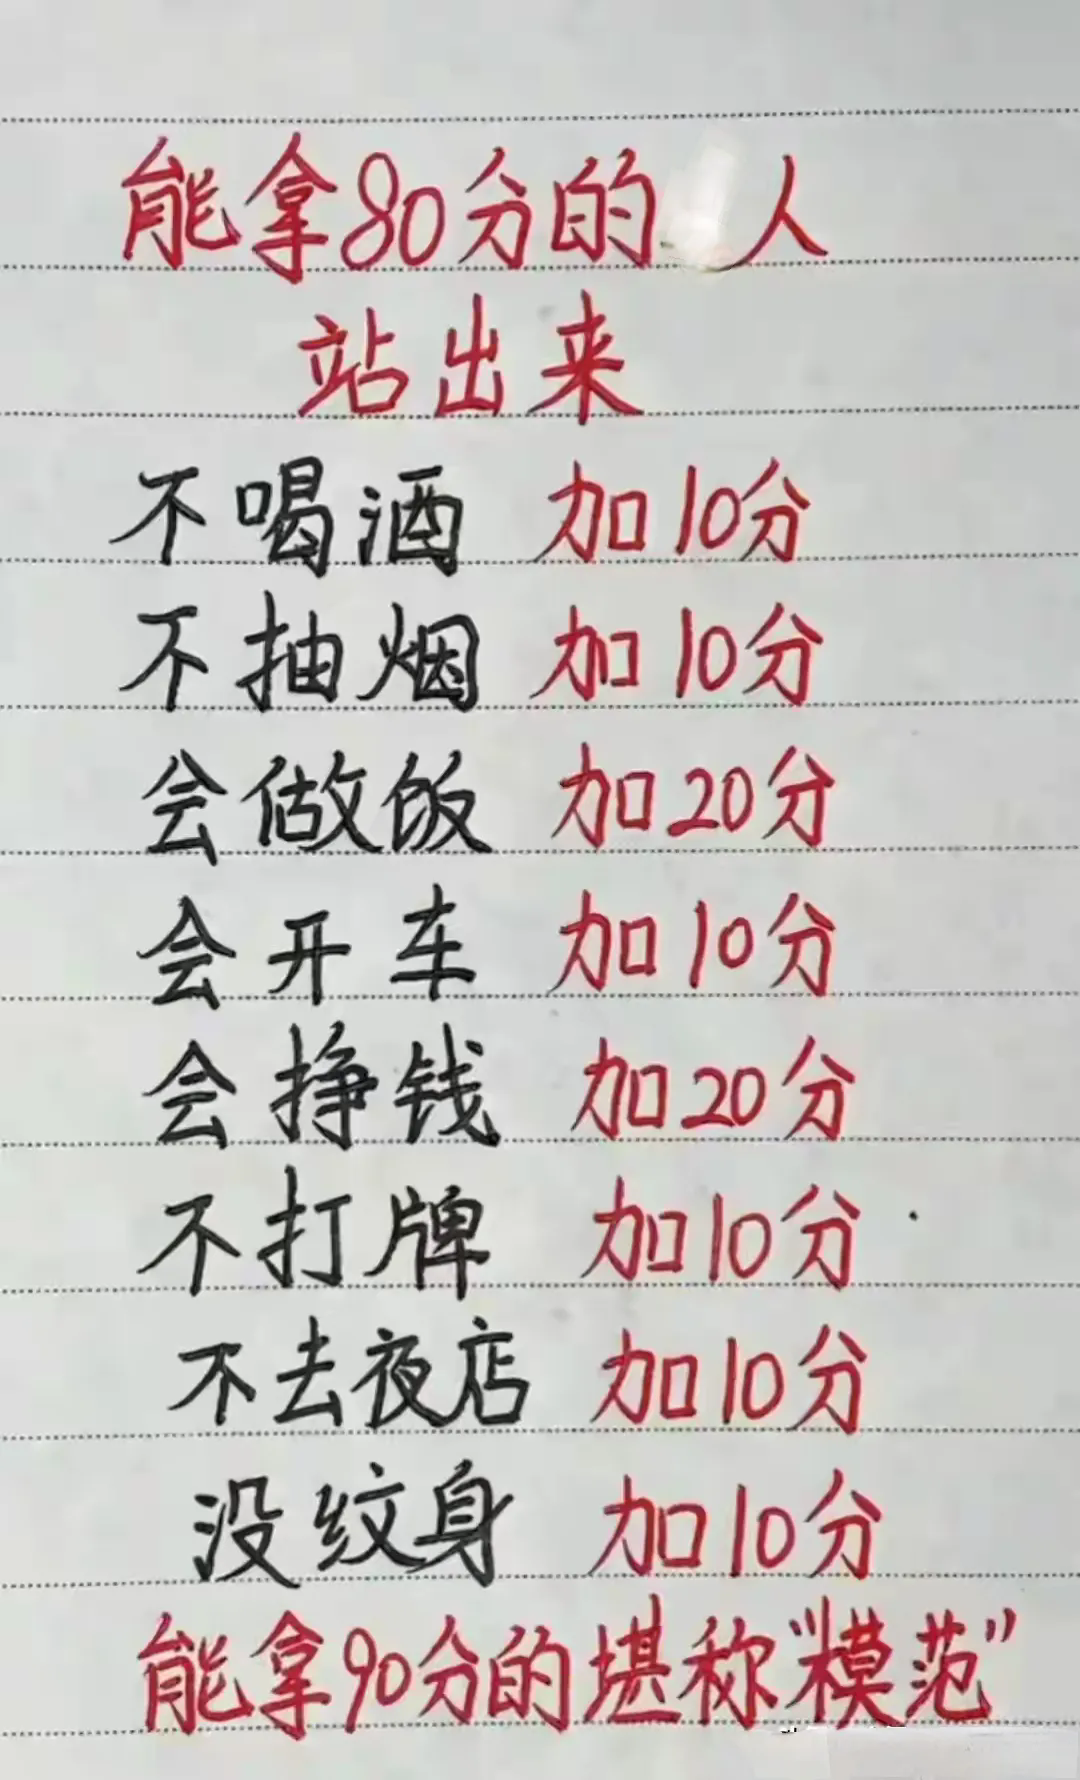 能拿80分的 人
站出来
不喝酒 加10分
不抽烟 加10分
会做饭 加20分
会开车 加10分
会挣钱 加20分
不打牌 加10分
不去夜店 加10分
没纹身 加10分
能拿90分的堪称“模范”